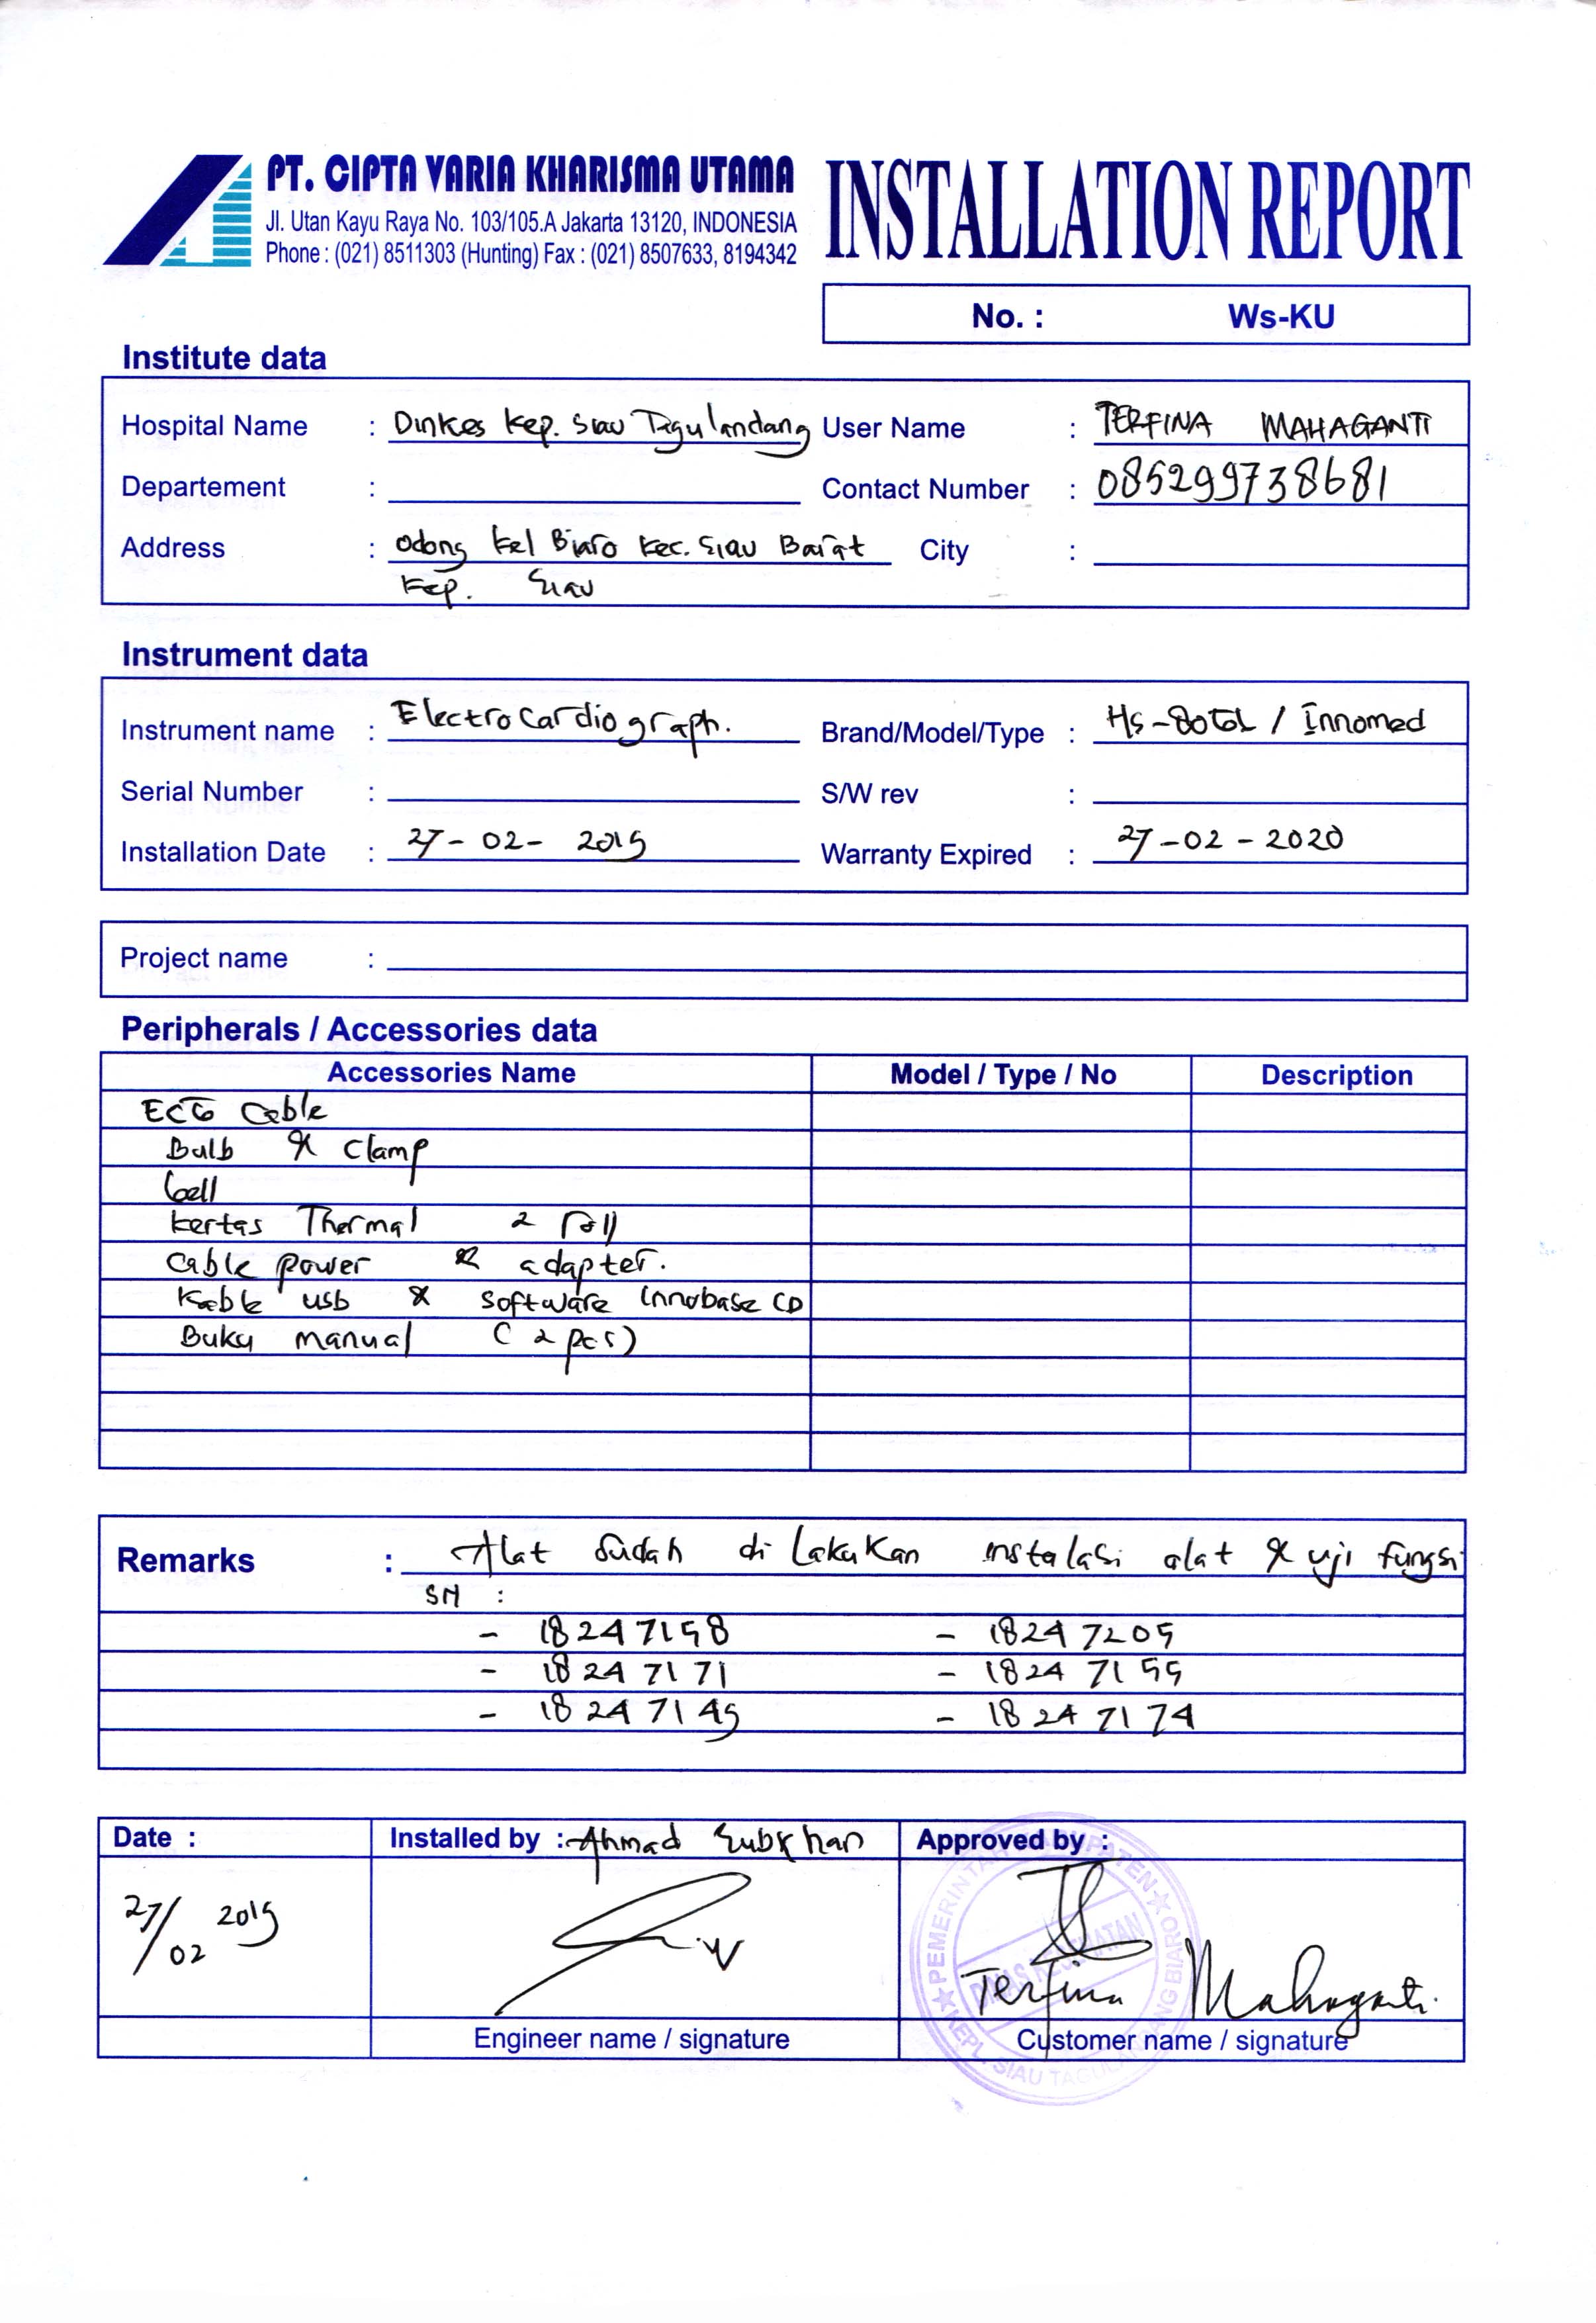 PT. CIPTA VARIA KHARISMA UTAMA
Jl. Utan Kayu Raya No. 103/105.A Jakarta 13120, INDONESIA
Phone : (021) 8511303 (Hunting) Fax : (021) 8507633, 8194342
INSTALLATION REPORT
No. : Ws-KU
Institute data
Hospital Name : Dinkes Kep. Siau Tagulandang User Name : TERFINA MAHAGANTI
Departement : Contact Number : 085299738681
Address : Odong kel Biaro Kec. Siau Barat City :
Kep. Siau
Instrument data
Instrument name : Electrocardiograph. Brand/Model/Type : Hs-80G-L / Innomed
Serial Number : S/W rev :
Installation Date : 27-02-2019 Warranty Expired : 27-02-2020
Project name :
Peripherals / Accessories data
Accessories Name Model / Type / No Description
ECG Cable
Bulb & Clamp
Gell
kertas Thermal 2 roll
Cable power & adapter.
Kable usb & software Innobase CD
Buku manual (2 pcs)
Remarks : Alat sudah di Lakukan instalasi alat & uji fungsi
SN :
- 18247158 - 18247209
- 18247171 - 18247159
- 18247149 - 18247174
Date : Installed by : Ahmad Subkhan Approved by :
27/02 2019
PEMERINTAH KABUPATEN
DINAS KESEHATAN
KEPL. SIAU TAGULANDANG BIARO
Terfina Mahaganti.
Engineer name / signature Customer name / signature